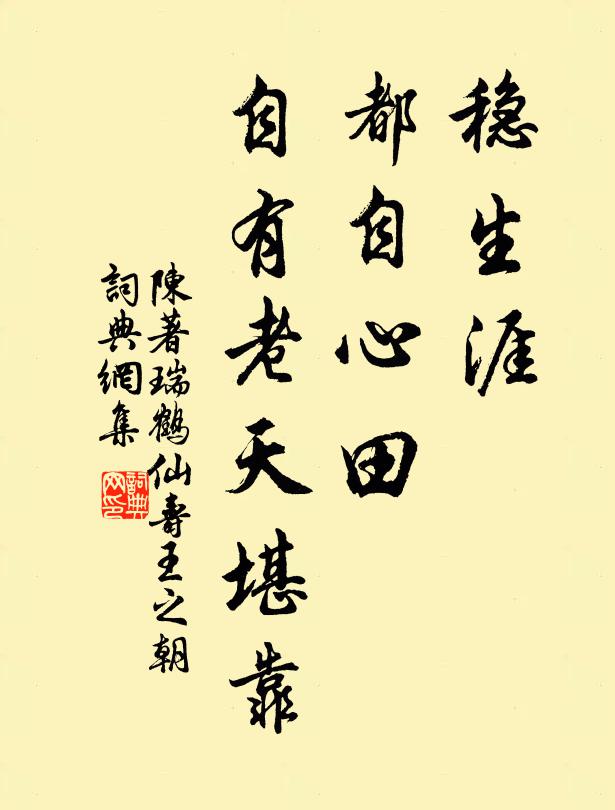 穩生涯
都自心田
自有老天堪靠
陳著瑞鶴仙壽王之朝
詞典網集
詞典網印